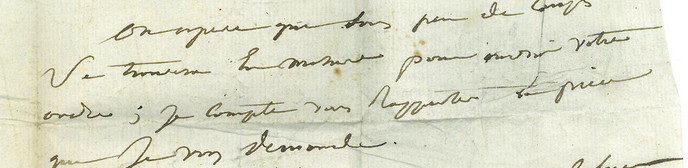 On espère que sous peu de temps
Se trouvera en mesure pour votre
ordre ; Je compte vous rapporter la pièce
que Je vous demande.